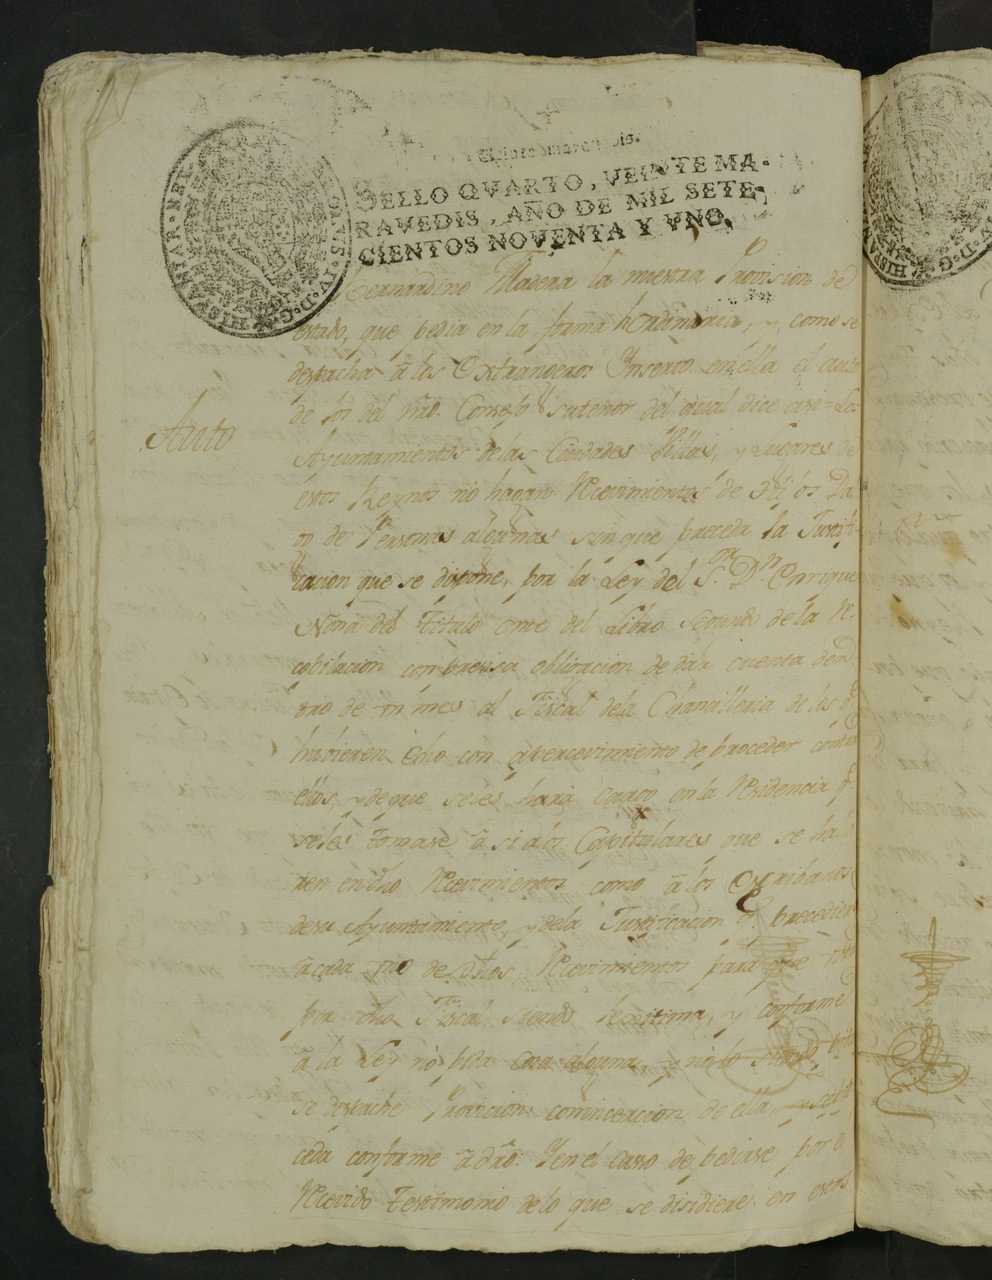 SELLO QVARTO, VEINTE MA-
RAVEDIS, AÑO DE MIL SETE-
CIENTOS NOVENTA Y VNO.
HISPANIAR. REX
CAROLVS. IV. D. G.
Bernardino Madera la nuestra Provision de
estado, que pedia en la forma hordinaria, y, como se
despacha â los Extrangeros Ynserto en ella el auto
de los del nŕo. Consejo su tenor del qual dice asi = Los
Auto
Ayuntamientos de las Ciudades Villas, y Lugares de
estos Reynos no hagan Recivimientos de
de Personas algunas sin que preceda la Justifi-
cacion que se dispone, por la Ley del S.or D.n Enrrique
Nona del Titulo once del Libro Segundo de la Re
copilacion con precisa obligacion de dar cuenta den
tro de un mes al Fiscal de la Chancilleria de los q.e
huvieren echo con apercevimiento de proceder contra
ellos, y de que se les hará cargo en la Residencia q.e
se les tomase â si â los Capitulares que se halla
ren en dho Recivimientos como â los Escribanos
de su Ayuntamiento, y de la Justificacion q.e precediere
â cada uno de dhos Recivimientos para que
por dho Fiscal siendo lexitima, y conforme
â la Ley no pida cosa alguna, y no lo siendo, pida
se despache Provision combocacion de ella, y
cada conforme â dŕo: Y en el casso de pedirse por el
Recivido Testimonio de lo que se disidiere en estos